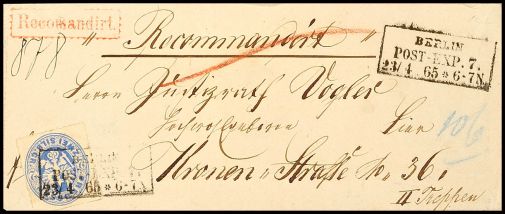 Recomandirt.
878
" Recommandirt "
BERLIN
POST-EXP. 7.
23/4 65 * 6-7N.
Herrn Justizrath Vogler
Hochwohlgeboren
hier
Kronen-Straße No. 36.
II Treppen
BERLIN
POST-EXP. 7.
23/4 65 * 6-7N.